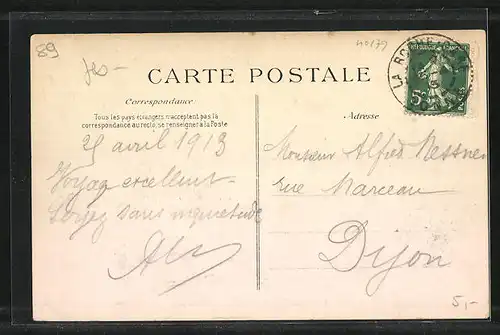 89
40179
LA ROCHE
RÉPUBLIQUE FRANÇAISE
CARTE POSTALE
Correspondance
Tous les pays étrangers n'acceptent pas la
correspondance au recto, se renseigner à la Poste
Adresse
25 avril 1913
Voyage excellent
Soyez sans inquiétude
Monsieur Alfred Messner
rue Marceau
Dijon
5,-